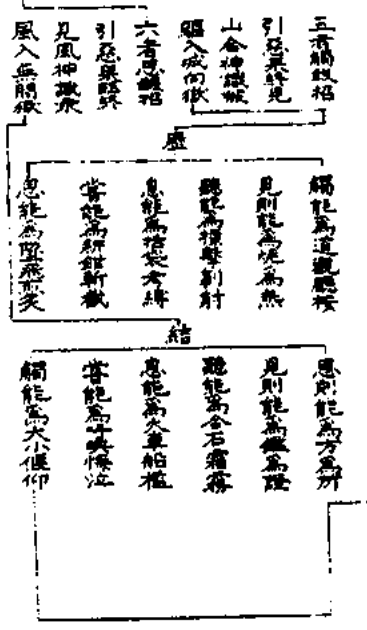 五者觸報招
引惡果終見
山合神識城
驅入城向獄
六者思報招
引惡果臨終
見風神識乘
風入無間獄
歷
觸能為道觀廳按
見則能為燒為爇
聽能為撞擊剚射
息能為括袋考縛
嘗能為耕鉗斬截
思能為墜飛煎炙
結
思則能為方為所
見則能為鑑為證
聽能為合石霜霧
息能為火車船檻
嘗能為呼喚悔泣
觸能為大小偃仰